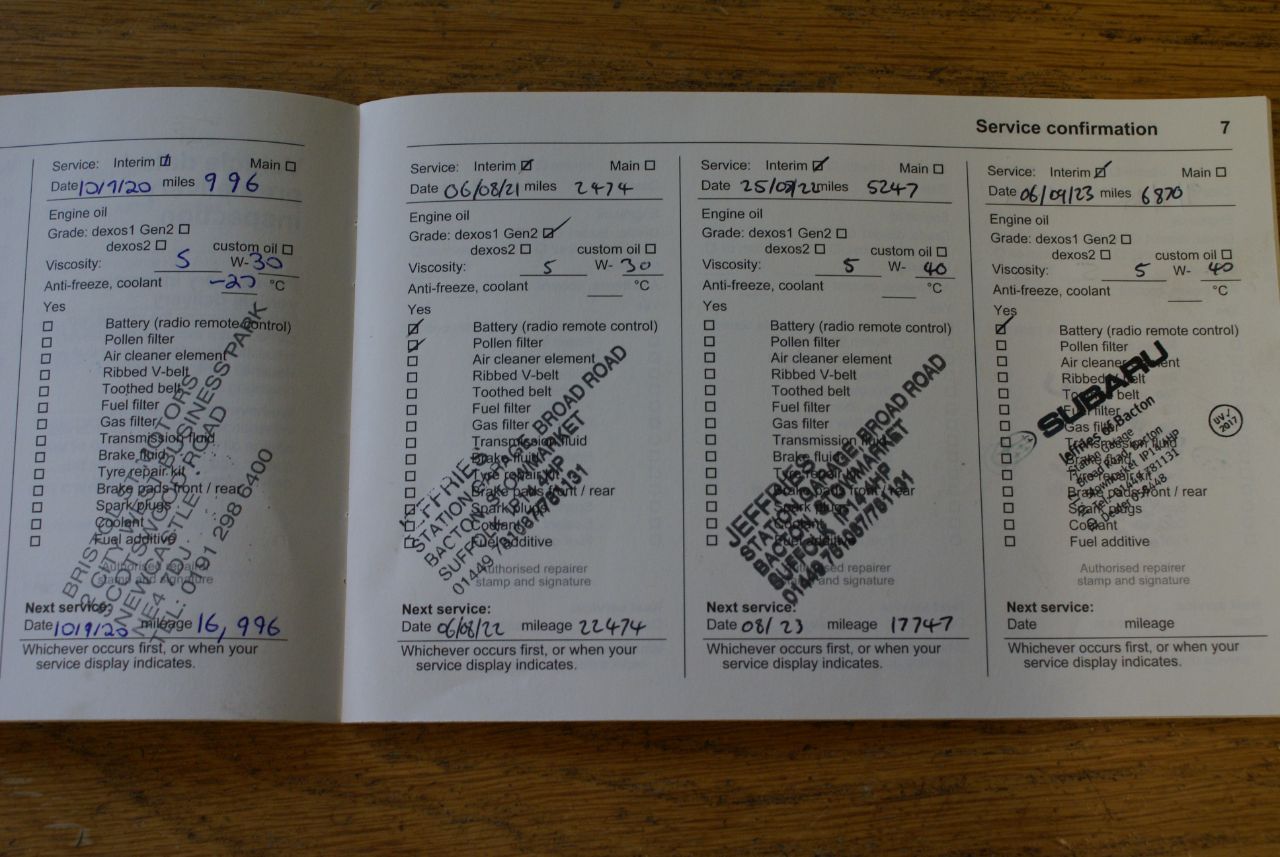 Service confirmation 7
Service: Interim Main
Date 10/9/20 miles 996
Engine oil
Grade: dexos1 Gen2
dexos2 custom oil
Viscosity: 5 W- 30
Anti-freeze, coolant -27 °C
Yes
Battery (radio remote control)
Pollen filter
Air cleaner element
Ribbed V-belt
Toothed belt
Fuel filter
Gas filter
Transmission fluid
Brake fluid
Tyre repair kit
Brake pads front / rear
Spark plugs
Coolant
Fuel additive
BUSINESS PARK
ROAD
NE4
TEL: 0191 298 6400
Authorised repairer
stamp and signature
Next service:
Date 10/9/20 mileage 16,996
Whichever occurs first, or when your
service display indicates.
Service: Interim Main
Date 06/08/21 miles 2474
Engine oil
Grade: dexos1 Gen2
dexos2 custom oil
Viscosity: 5 W- 30
Anti-freeze, coolant °C
Yes
Battery (radio remote control)
Pollen filter
Air cleaner element
Ribbed V-belt
Toothed belt
Fuel filter
Gas filter
Transmission fluid
Brake fluid
Tyre repair kit
Brake pads front / rear
Spark plugs
Coolant
Fuel additive
JEFFRIES
STATION GARAGE, BROAD ROAD
BACTON, STOWMARKET
SUFFOLK IP14 4HP
01449 781087/781131
Authorised repairer
stamp and signature
Next service:
Date 06/08/22 mileage 22474
Whichever occurs first, or when your
service display indicates.
Service: Interim Main
Date 25/08/22 miles 5247
Engine oil
Grade: dexos1 Gen2
dexos2 custom oil
Viscosity: 5 W- 40
Anti-freeze, coolant °C
Yes
Battery (radio remote control)
Pollen filter
Air cleaner element
Ribbed V-belt
Toothed belt
Fuel filter
Gas filter
Transmission fluid
Brake fluid
Tyre repair kit
Brake pads front / rear
Spark plugs
Coolant
Fuel additive
JEFFRIES
STATION GARAGE, BROAD ROAD
BACTON, STOWMARKET
SUFFOLK IP14 4HP
01449 781087/781131
Authorised repairer
stamp and signature
Next service:
Date 08/23 mileage 17747
Whichever occurs first, or when your
service display indicates.
Service: Interim Main
Date 06/09/23 miles 6870
Engine oil
Grade: dexos1 Gen2
dexos2 custom oil
Viscosity: 5 W- 40
Anti-freeze, coolant °C
Yes
Battery (radio remote control)
Pollen filter
Air cleaner element
Ribbed V-belt
Toothed belt
Fuel filter
Gas filter
Transmission fluid
Brake fluid
Tyre repair kit
Brake pads front / rear
Spark plugs
Coolant
Fuel additive
SUBARU
Jeffries of Bacton
Station Garage
Broad Road, Bacton
Stowmarket IP14 4HP
Tel: 01449 781131
Dealer
UV/
2017
Authorised repairer
stamp and signature
Next service:
Date mileage
Whichever occurs first, or when your
service display indicates.